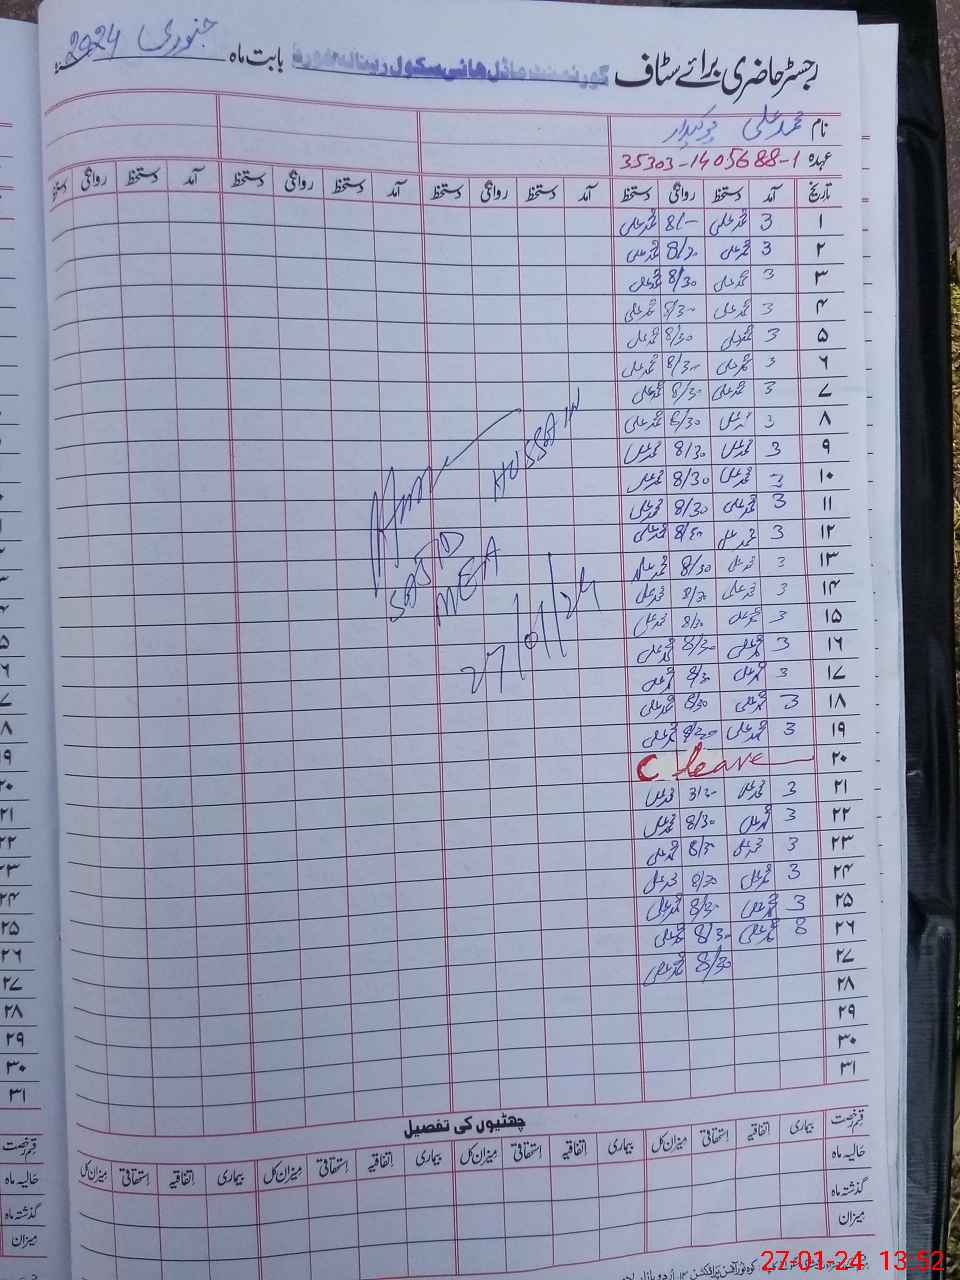 رجسٹر حاضری برائے سٹاف گورنمنٹ ماڈل ہائی سکول رینالہ خورد بابت ماہ جنوری 2024
نام محمد علی چوکیدار
عہدہ 35303-1405688-1
تاریخ آمد دستخط روانگی دستخط آمد دستخط روانگی دستخط آمد دستخط روانگی دستخط
۱ 3 محمد علی 8/- محمد علی
۲ 3 محمد علی 8/30 محمد علی
۳ 3 محمد علی 8/30 محمد علی
۴ 3 محمد علی 8/30 محمد علی
۵ 3 محمد علی 8/30 محمد علی
۶ 3 محمد علی 8/30 محمد علی
۷ 3 محمد علی 8/30 محمد علی
۸ 3 محمد علی 8/30 محمد علی
۹ 3 محمد علی 8/30 محمد علی
۱۰ 3 محمد علی 8/30 محمد علی
۱۱ 3 محمد علی 8/30 محمد علی
۱۲ 3 محمد علی 8/30 محمد علی
۱۳ 3 محمد علی 8/30 محمد علی
۱۴ 3 محمد علی 8/30 محمد علی
۱۵ 3 محمد علی 8/30 محمد علی
۱۶ 3 محمد علی 8/30 محمد علی
۱۷ 3 محمد علی 8/30 محمد علی
۱۸ 3 محمد علی 8/30 محمد علی
۱۹ 3 محمد علی 8/30 محمد علی
۲۰ C leave
۲۱ 3 محمد علی 8/30 محمد علی
۲۲ 3 محمد علی 8/30 محمد علی
۲۳ 3 محمد علی 8/30 محمد علی
۲۴ 3 محمد علی 8/30 محمد علی
۲۵ 3 محمد علی 8/30 محمد علی
۲۶ 8 محمد علی 8/30 محمد علی
۲۷ 8/30 محمد علی
۲۸
۲۹
۳۰
۳۱
SAJID HUSSAIN
MEA
27/01/24
چھٹیوں کی تفصیل
قسم رخصت بیماری اتفاقیہ استحقاقی میزان کل بیماری اتفاقیہ استحقاقی میزان کل بیماری اتفاقیہ استحقاقی میزان کل
حالیہ ماہ
گذشتہ ماہ
میزان
27-01-24 13:52